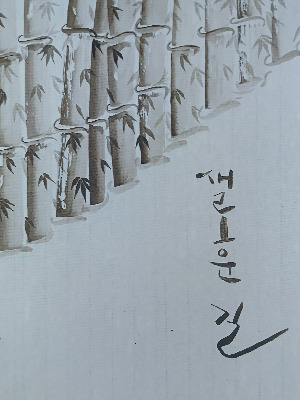 새로운 길